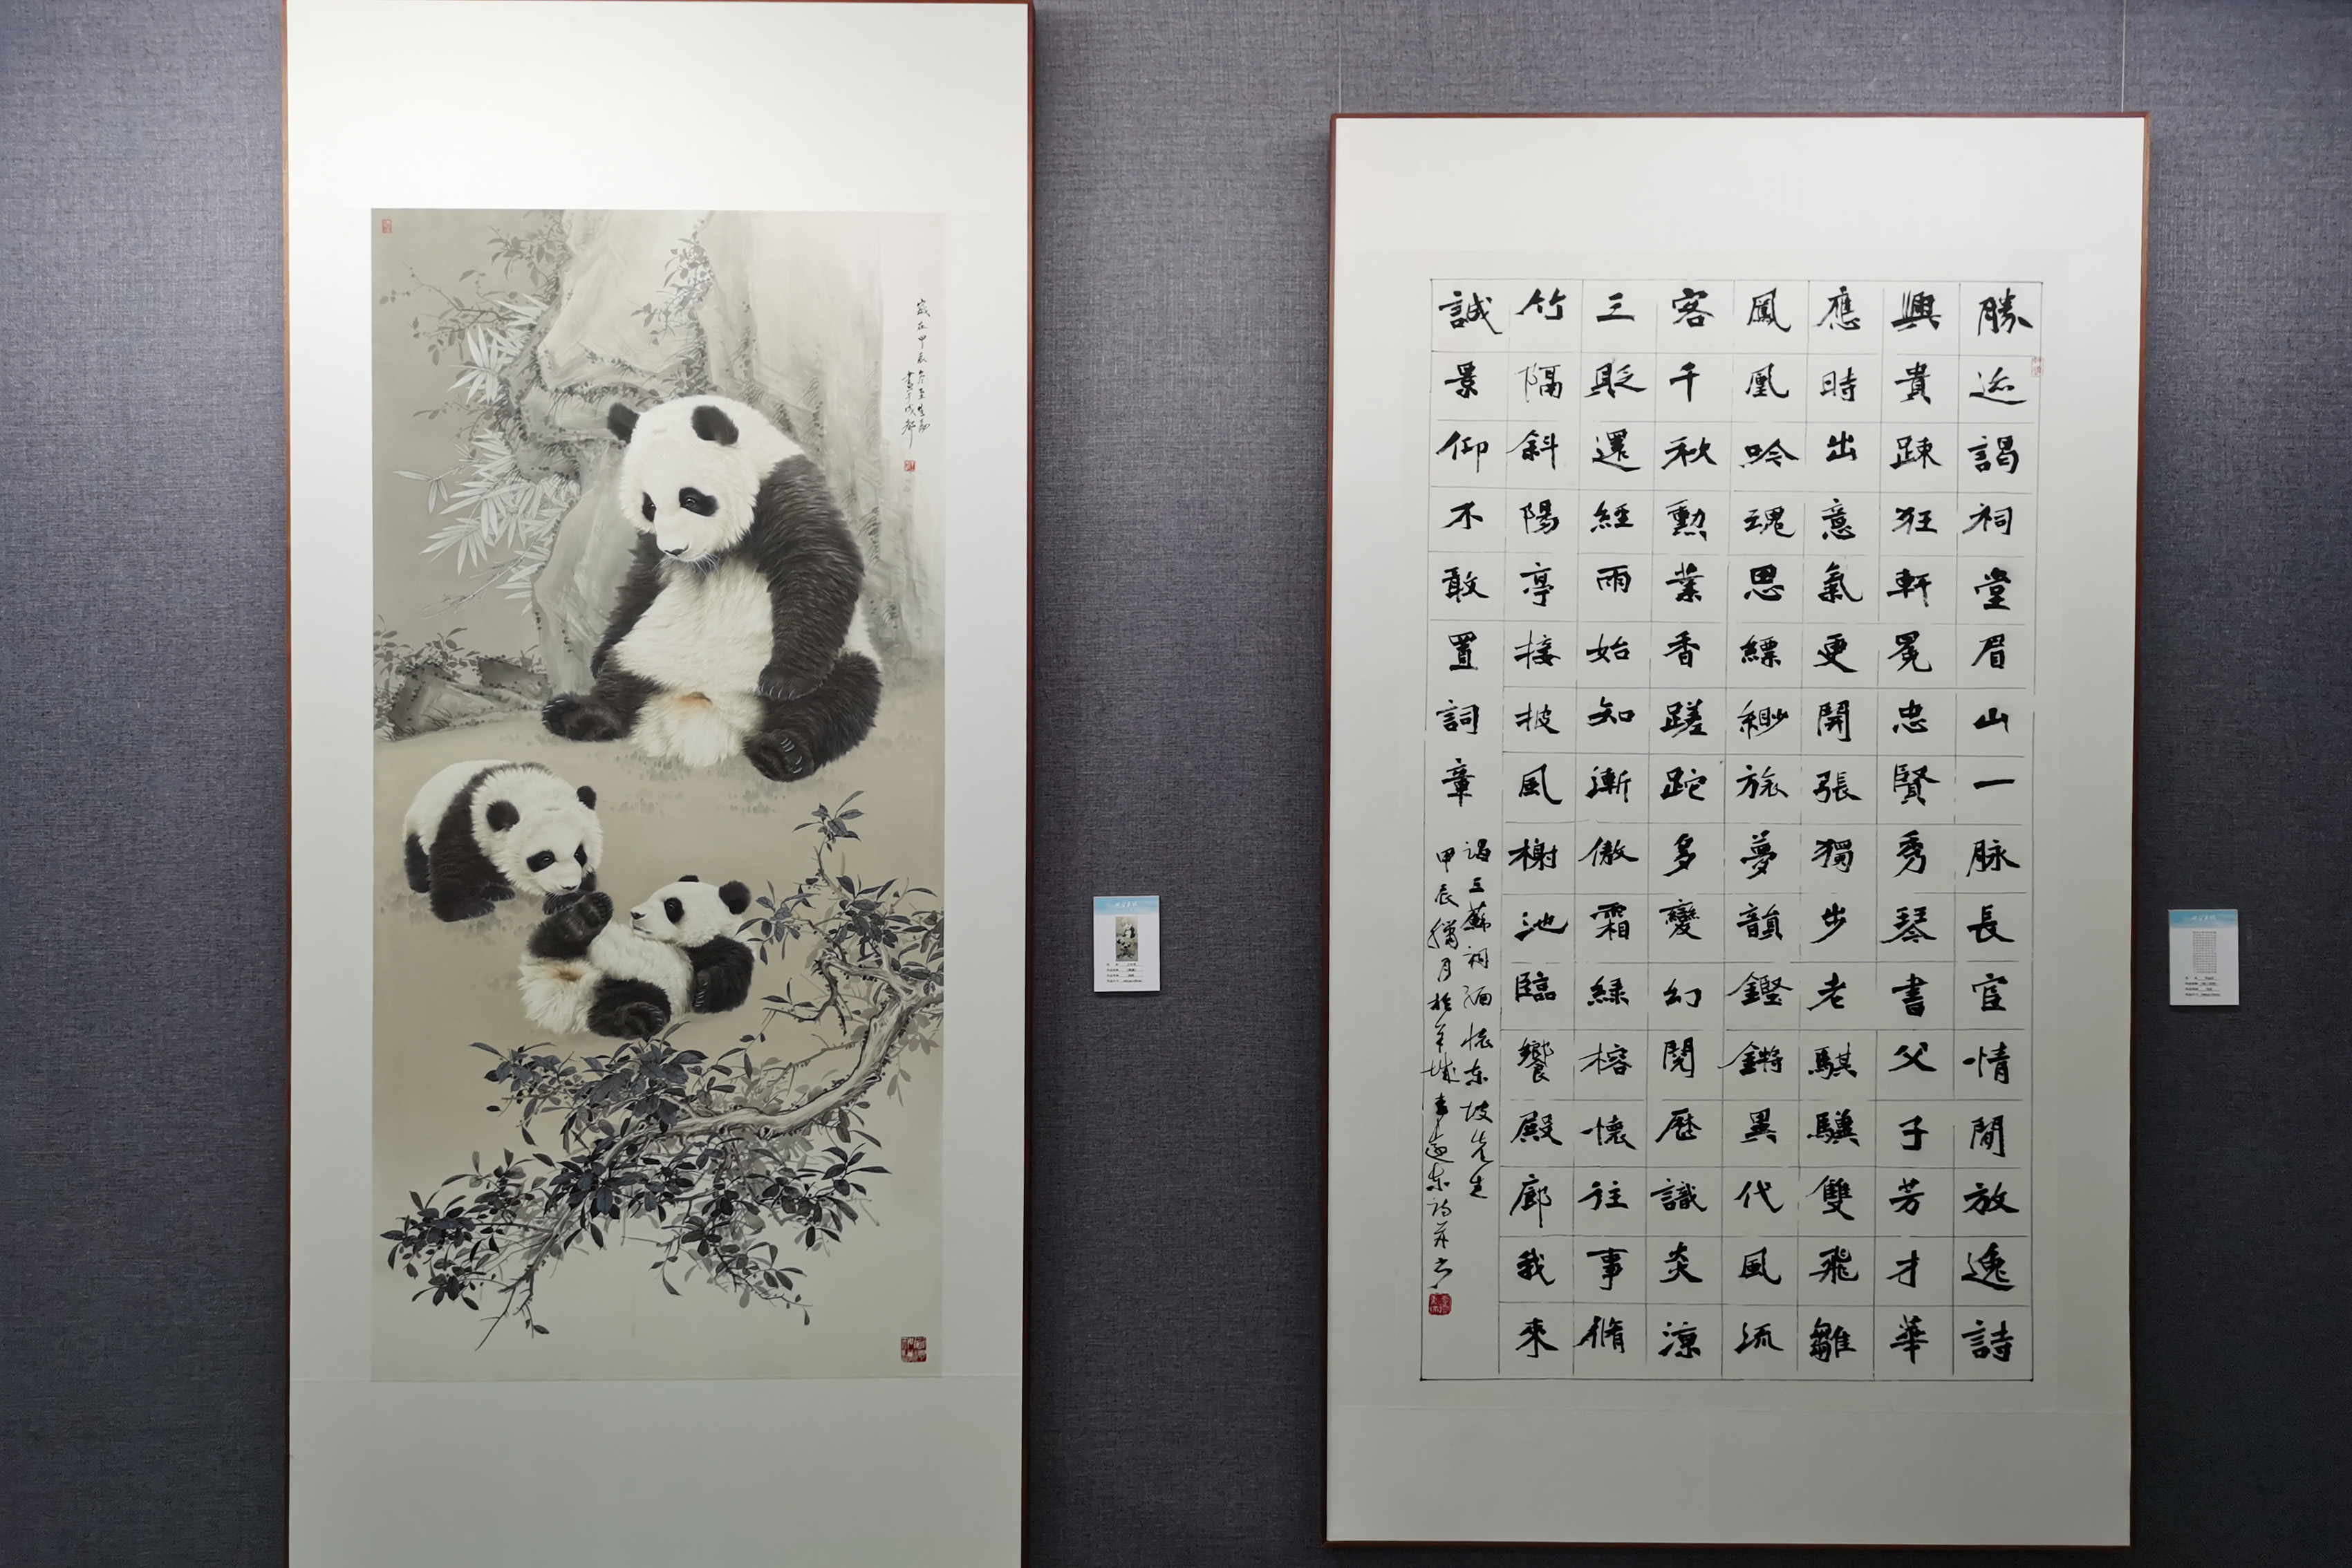 歲在甲辰冬
于成都
勝迹謁祠堂眉山一脉長宦情閒放逸詩
興貴踈狂軒冕忠賢秀琴書父子芳才華
應時出意氣更開張獨步老騏驥雙飛雛
鳳凰吟魂思縹緲旅夢韻鏗鏘異代風流
客千秋勳業香蹉跎多變幻閱歷識炎涼
三貶還經雨始知漸傲霜綠榕懷往事脩
竹隔斜陽亭接披風榭池臨饗殿廊我來
誠景仰不敢置詞章
謁三蘇祠緬懷东坡先生
甲辰臘月於羊城东詩并书